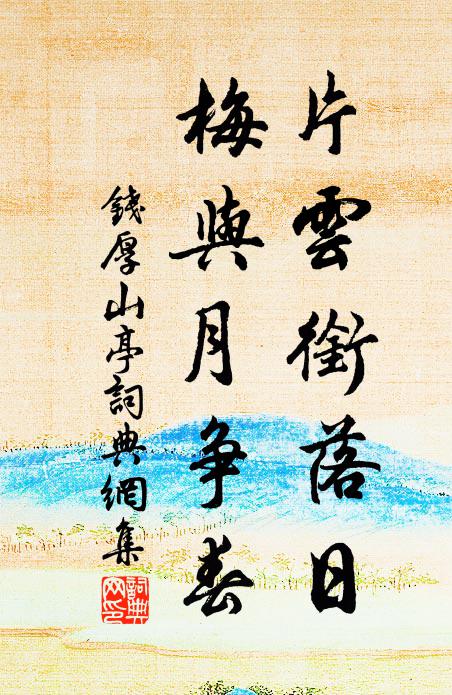 片雲銜落日
梅與月争春
錢厚山亭詞典網集
詞典
网印